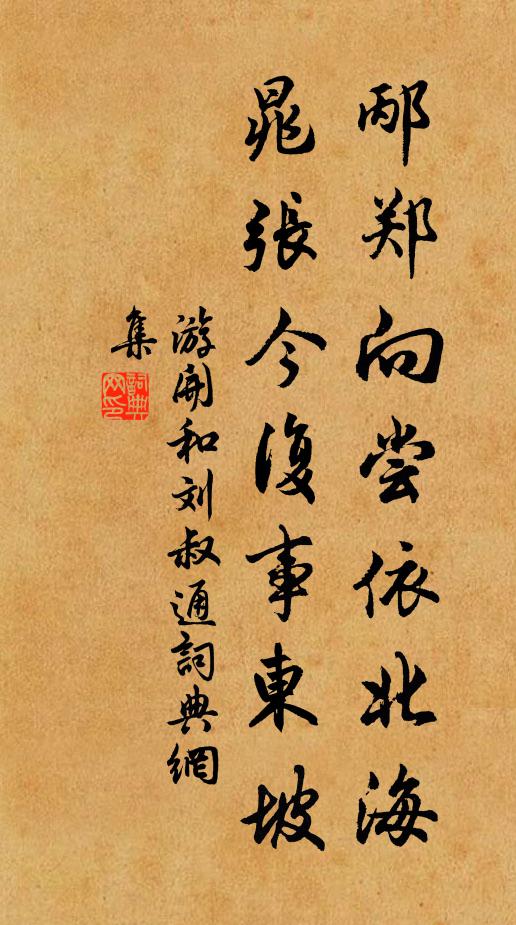 邴郑向尝依北海
晁張今復事東坡
游開和刘叔通詞典網
集
詞典
网印